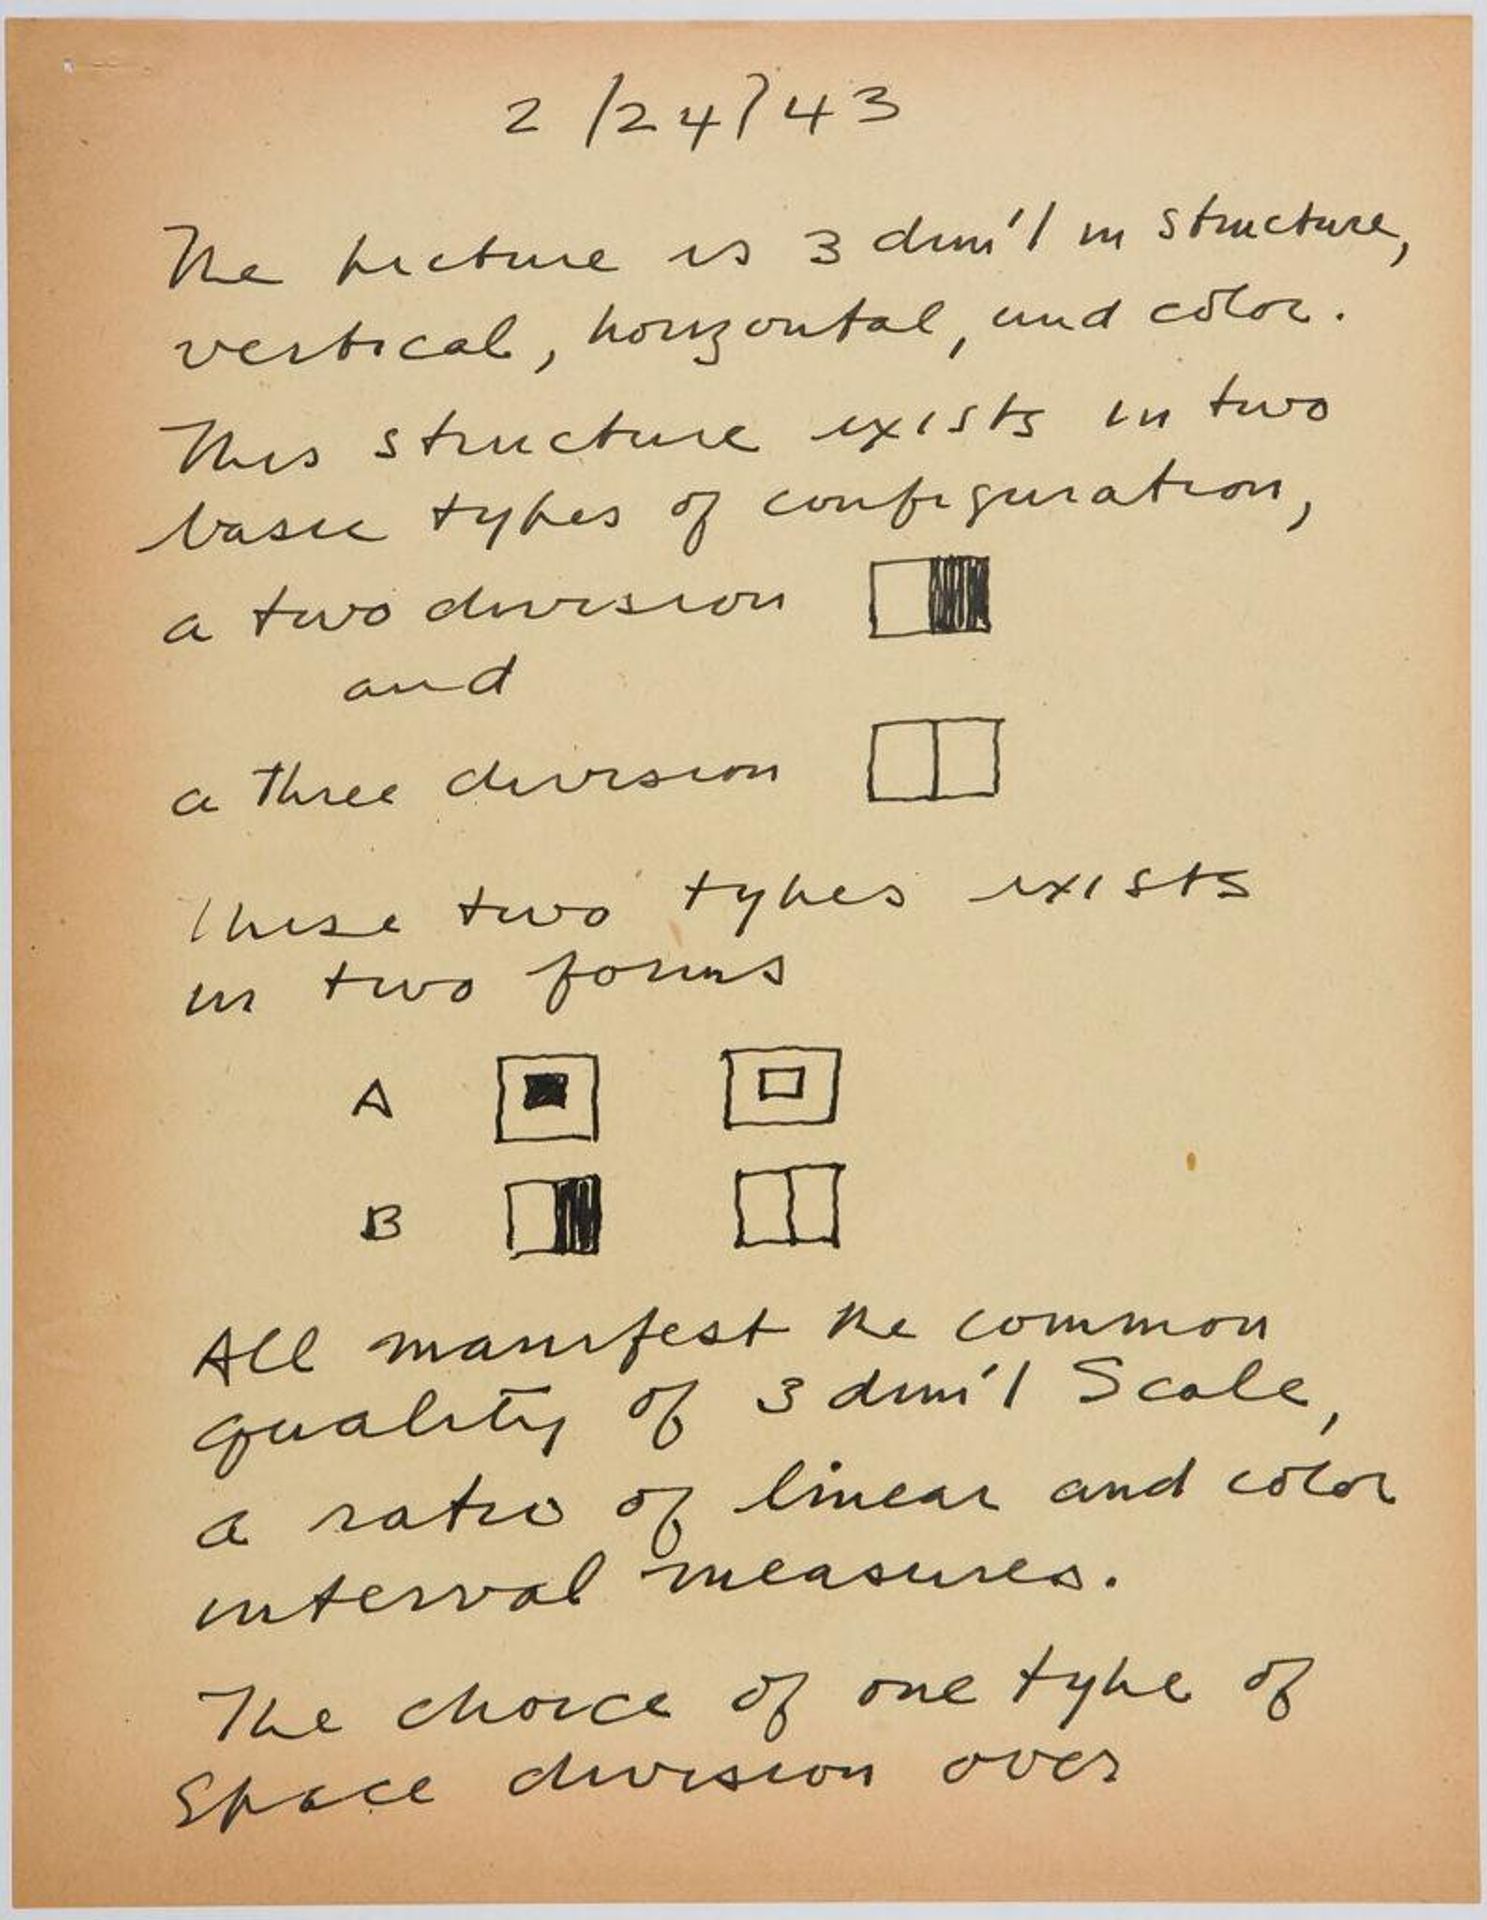 2/24/43
The picture is 3 dim'l in structure,
vertical, horizontal, and color.
This structure exists in two
basic types of configuration,
a two division
and
a three division
These two types exists
in two forms
A
B
All manifest the common
quality of 3 dim'l Scale,
a ratio of linear and color
interval measures.
The choice of one type of
Space division over